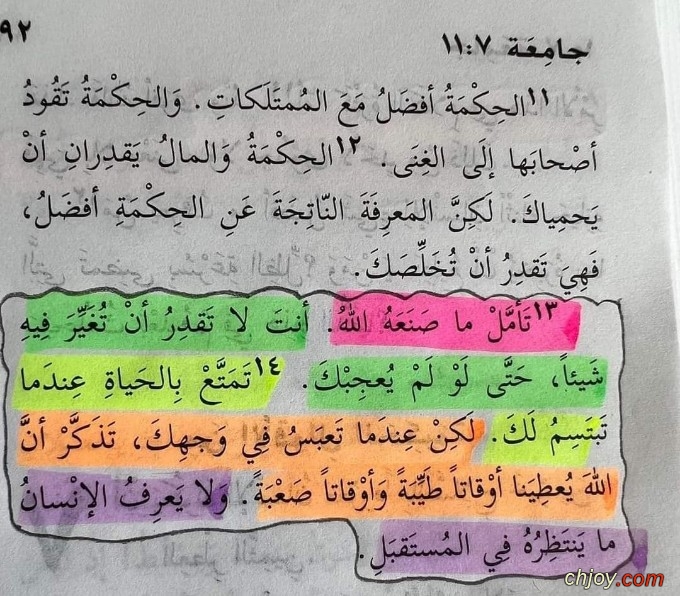 جامِعَة ١١:٧
٩٢
١١الحِكْمَةُ أفضَلُ مَعَ المُمتَلَكاتِ. وَالحِكْمَةُ تَقُودُ
أصْحابَها إلَى الغِنَى. ١٢الحِكْمَةُ وَالمالُ يَقدِرانِ أنْ
يَحمِياكَ. لَكِنَّ المَعرِفَةَ النّاتِجَةَ عَنِ الحِكْمَةِ أفضَلُ،
فَهِيَ تَقدِرُ أنْ تُخَلِّصَكَ.
١٣تَأمَّلْ ما صَنَعَهُ اللهُ. أنتَ لا تَقدِرُ أنْ تُغَيِّرَ فِيهِ
شَيئاً، حَتَّى لَوْ لَمْ يُعجِبْكَ. ١٤تَمَتَّعْ بِالحَياةِ عِندَما
تَبتَسِمُ لَكَ. لَكِنْ عِندَما تَعبَسُ فِي وَجهِكَ، تَذَكَّرْ أنَّ
اللهَ يُعطِينا أوْقاتاً طَيِّبَةً وَأوْقاتاً صَعْبَةً. وَلا يَعرِفُ الإنْسانُ
ما يَنتَظِرُهُ فِي المُستَقبَلِ.
chjoy.com